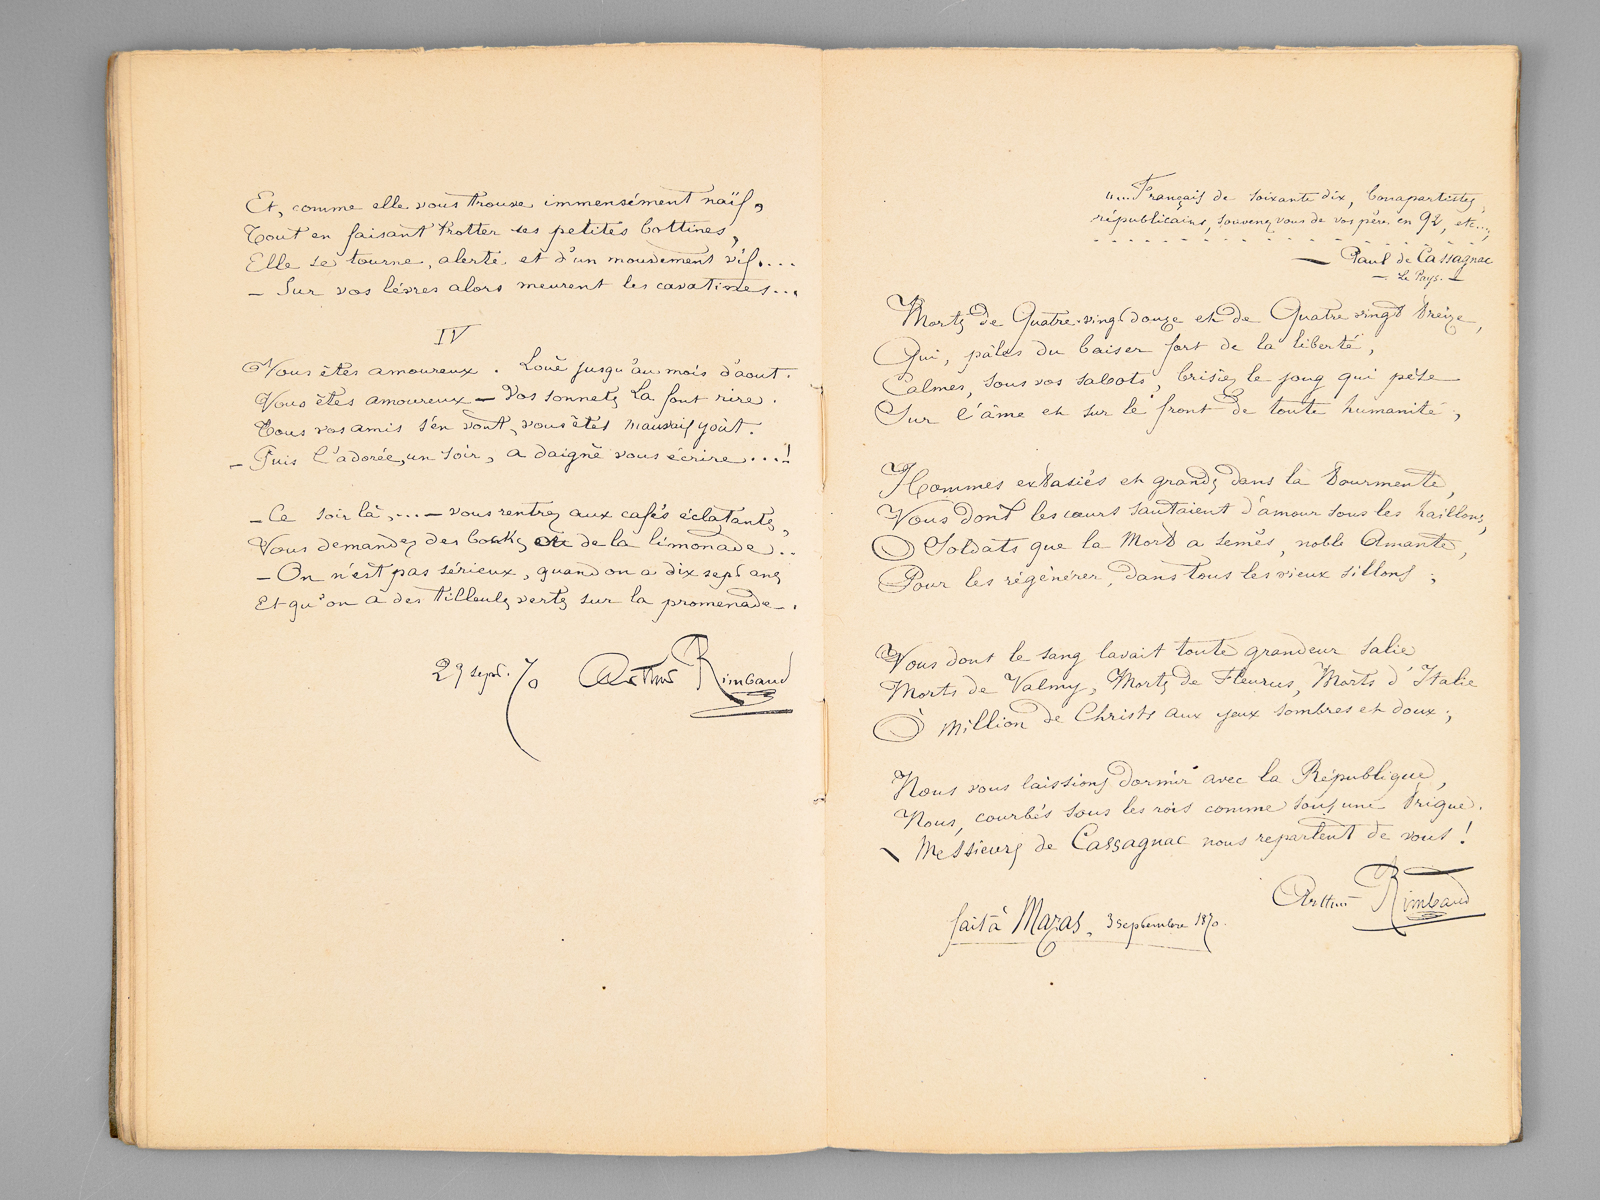 Et, comme elle vous trouve immensément naïf,
Tout en faisant trotter ses petites bottines,
Elle se tourne, alerte et d'un mouvement vif....
– Sur vos lèvres alors meurent les cavatines...
IV
Vous êtes amoureux. Loué jusqu'au mois d'aout.
Vous êtes amoureux – Vos sonnets La font rire.
Tous vos amis s'en vont, vous êtes mauvais goût.
– Puis l'adorée, un soir, a daigné vous écrire...!
– Ce soir là,... – vous rentrez aux cafés éclatants,
Vous demandez des bocks ou de la limonade..
– On n'est pas sérieux, quand on a dix sept ans
Et qu'on a des tilleuls verts sur la promenade.
29 sept. 70 Arthur Rimbaud
"... Français de soixante dix, bonapartistes,
républicains, souvenez vous de vos pères en 92, etc...;
. . . . . . . . . . . . . . . . .
– Paul de Cassagnac
– Le Pays. –
Morts de Quatre-vingt douze et de Quatre vingt treize,
Qui, pâles du baiser fort de la liberté,
Calmes, sous vos sabots, brisiez le joug qui pèse
Sur l'âme et sur le front de toute humanité;
Hommes extasiés et grands dans la tourmente,
Vous dont les cœurs sautaient d'amour sous les haillons,
O Soldats que la Mort a semés, noble Amante,
Pour les régénérer, dans tous les vieux sillons;
Vous dont le sang lavait toute grandeur salie
Morts de Valmy, Morts de Fleurus, Morts d'Italie
O million de Christs aux yeux sombres et doux;
Nous vous laissions dormir avec la République,
Nous, courbés sous les rois comme sous une trique.
– Messieurs de Cassagnac nous reparlent de vous!
Arthur Rimbaud
fait à Mazas, 3 septembre 1870.